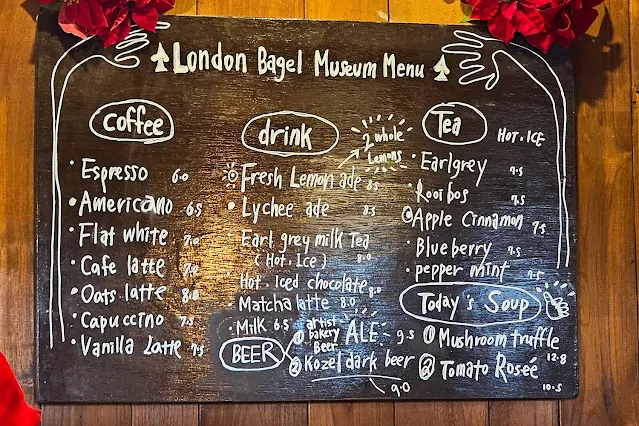 London Bagel Museum Menu
Coffee
Espresso 6.0
Americano 6.5
Flat white 7.0
Cafe latte 7.0
Oats latte 8.0
Capuccino 7.5
Vanilla Latte 7.5
drink
2 whole
Lemons
Fresh Lemon ade 8.5
Lychee ade 8.5
Earl grey milk Tea
(Hot. Ice) 8.0
Hot. Iced chocolate 8.0
Matcha latte 8.0
Milk 6.5
BEER
① artist
bakery
Beer
ALE 9.5
② Kozel dark beer
9.0
Tea
HOT. ICE
Earlgrey 7.5
Rooibos 7.5
Apple Cinnamon 7.5
Blueberry 7.5
pepper mint 7.5
Today's Soup
① Mushroom truffle
12.8
② Tomato Roseé
10.5